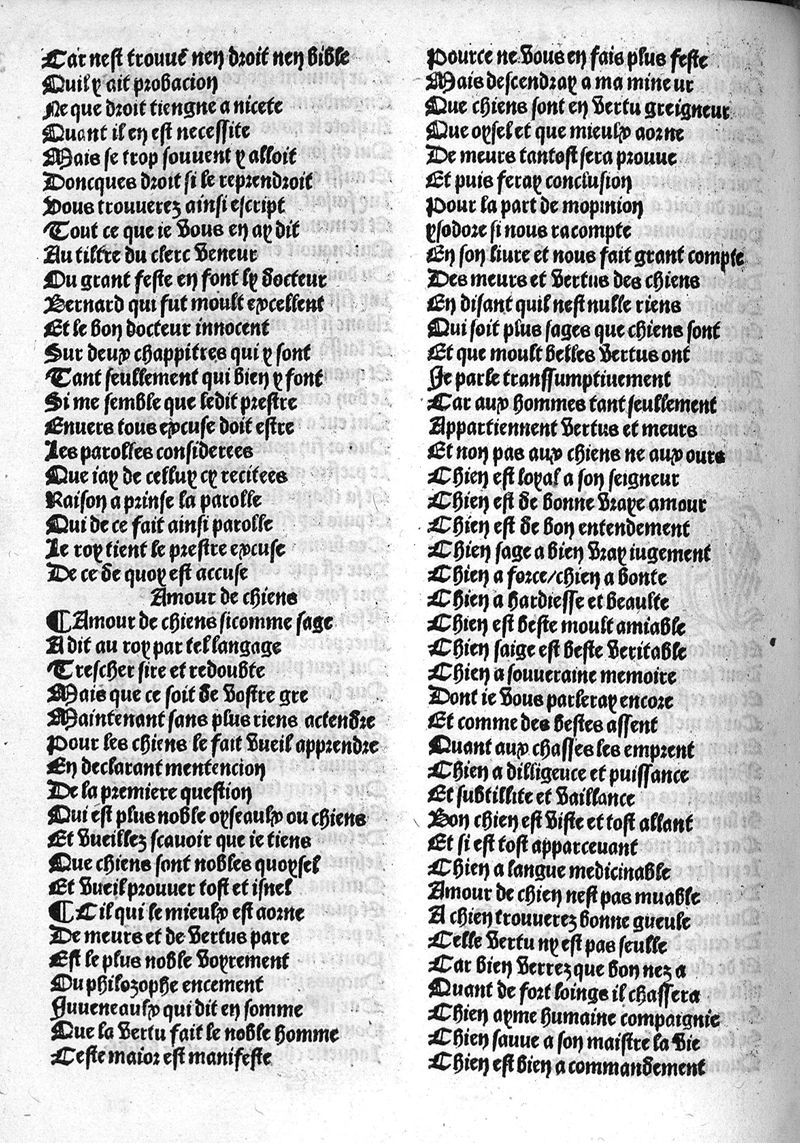 Car nest trouué ney droit ney bible
Quil y ait probacion
Ne que droit tiengne a nicete
Quant il en est necessite
Mais se trop souuent y alloit
Doncques droit si le reprendroit
Vous trouuerez ainsi escript
Tout ce que ie vous en ay dit
Au tiltre du clerc veneur
Ou grant feste en font ly docteur
Bernard qui fut moult excellent
Et le bon docteur innocent
Sur deux chappitres qui y sont
Tant seullement qui bien y font
Si me semble que ledit prestre
Enuers tous excuse doit estre
Les parolles considerees
Que iay de celluy cy recitees
Raison a prinse la parolle
Qui de ce fait ainsi parolle
Le roy tient le prestre excuse
De ce de quoy est accuse
Amour de chiens
¶Amour de chiens sicomme sage
A dit au roy par tel langage
Trescher sire et redoubte
Mais que ce soit de vostre gre
Maintenant sans plus riens actendre
Pour les chiens le fait vueil apprendre
En declarant mentencion
De la premiere question
Qui est plus noble oyseaulx ou chiens
Et vueillez scauoir que ie tiens
Que chiens sont nobles quoysel
Et vueil prouuer tost et isnel
¶Cil qui le mieulx est aorne
De meurs et de vertus pare
Est le plus noble voyrement
Du philozophe encement
Iuueneaulx qui dit en somme
Que la vertu fait le noble homme
Ceste maior est manifeste
Pource ne vous en fais plus feste
Mais descendray a ma mineur
Que chiens sont en vertu greigneur
Que oysel et que mieulx aorne
De meurs tantost sera prouue
Et puis feray conclusion
Pour la part de mopinion
ysodore si nous racompte
En son liure et nous fait grant compte
Des meurs et vertus des chiens
En disant quil nest nulle riens
Qui soit plus sages que chiens sont
Et que moult belles vertus ont
Je parle transsumptiuement
Car aux hommes tant seullement
Appartiennent vertus et meurs
Et non pas aux chiens ne aux ours
Chien est loyal a son seigneur
Chien est de bonne vraye amour
Chien est de bon entendement
Chien sage a bien vray iugement
Chien a force/chien a bonte
Chien a hardiesse et beaulte
Chien est beste moult amiable
Chien saige est beste veritable
Chien a souueraine memoire
Dont ie vous parleray encore
Et comme des bestes assent
Quant aux chasses les emprent
Chien a dilligeuce et puissance
Et subtillite et vaillance
Bon chien est viste et tost allant
Et si est tost apparceuant
Chien a langue medicinable
Amour de chien nest pas muable
A chien trouuerez bonne gueule
Celle vertu ny est pas seulle
Car bien verrez que bon nez a
Quant de fort loings il chassera
Chien ayme humaine compaignie
Chien sauue a son maistre la vie
Chien est bien a commandement